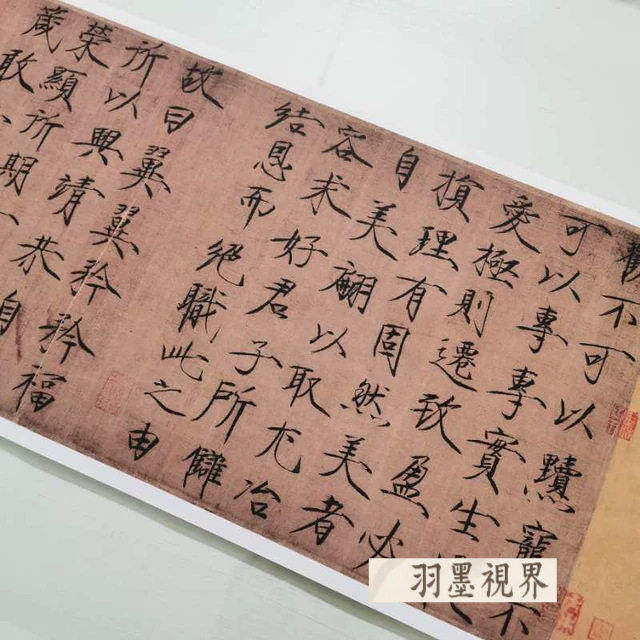 驩不可以黷寵不
可以專專實生慢
愛極則遷致盈必
損理有固然美者
自美翩以取尤冶
容求好君子所讎
結恩而絕職此之由
故曰翼翼矜矜福
所以興靖恭自
榮顯所期
箴敢
羽墨視界